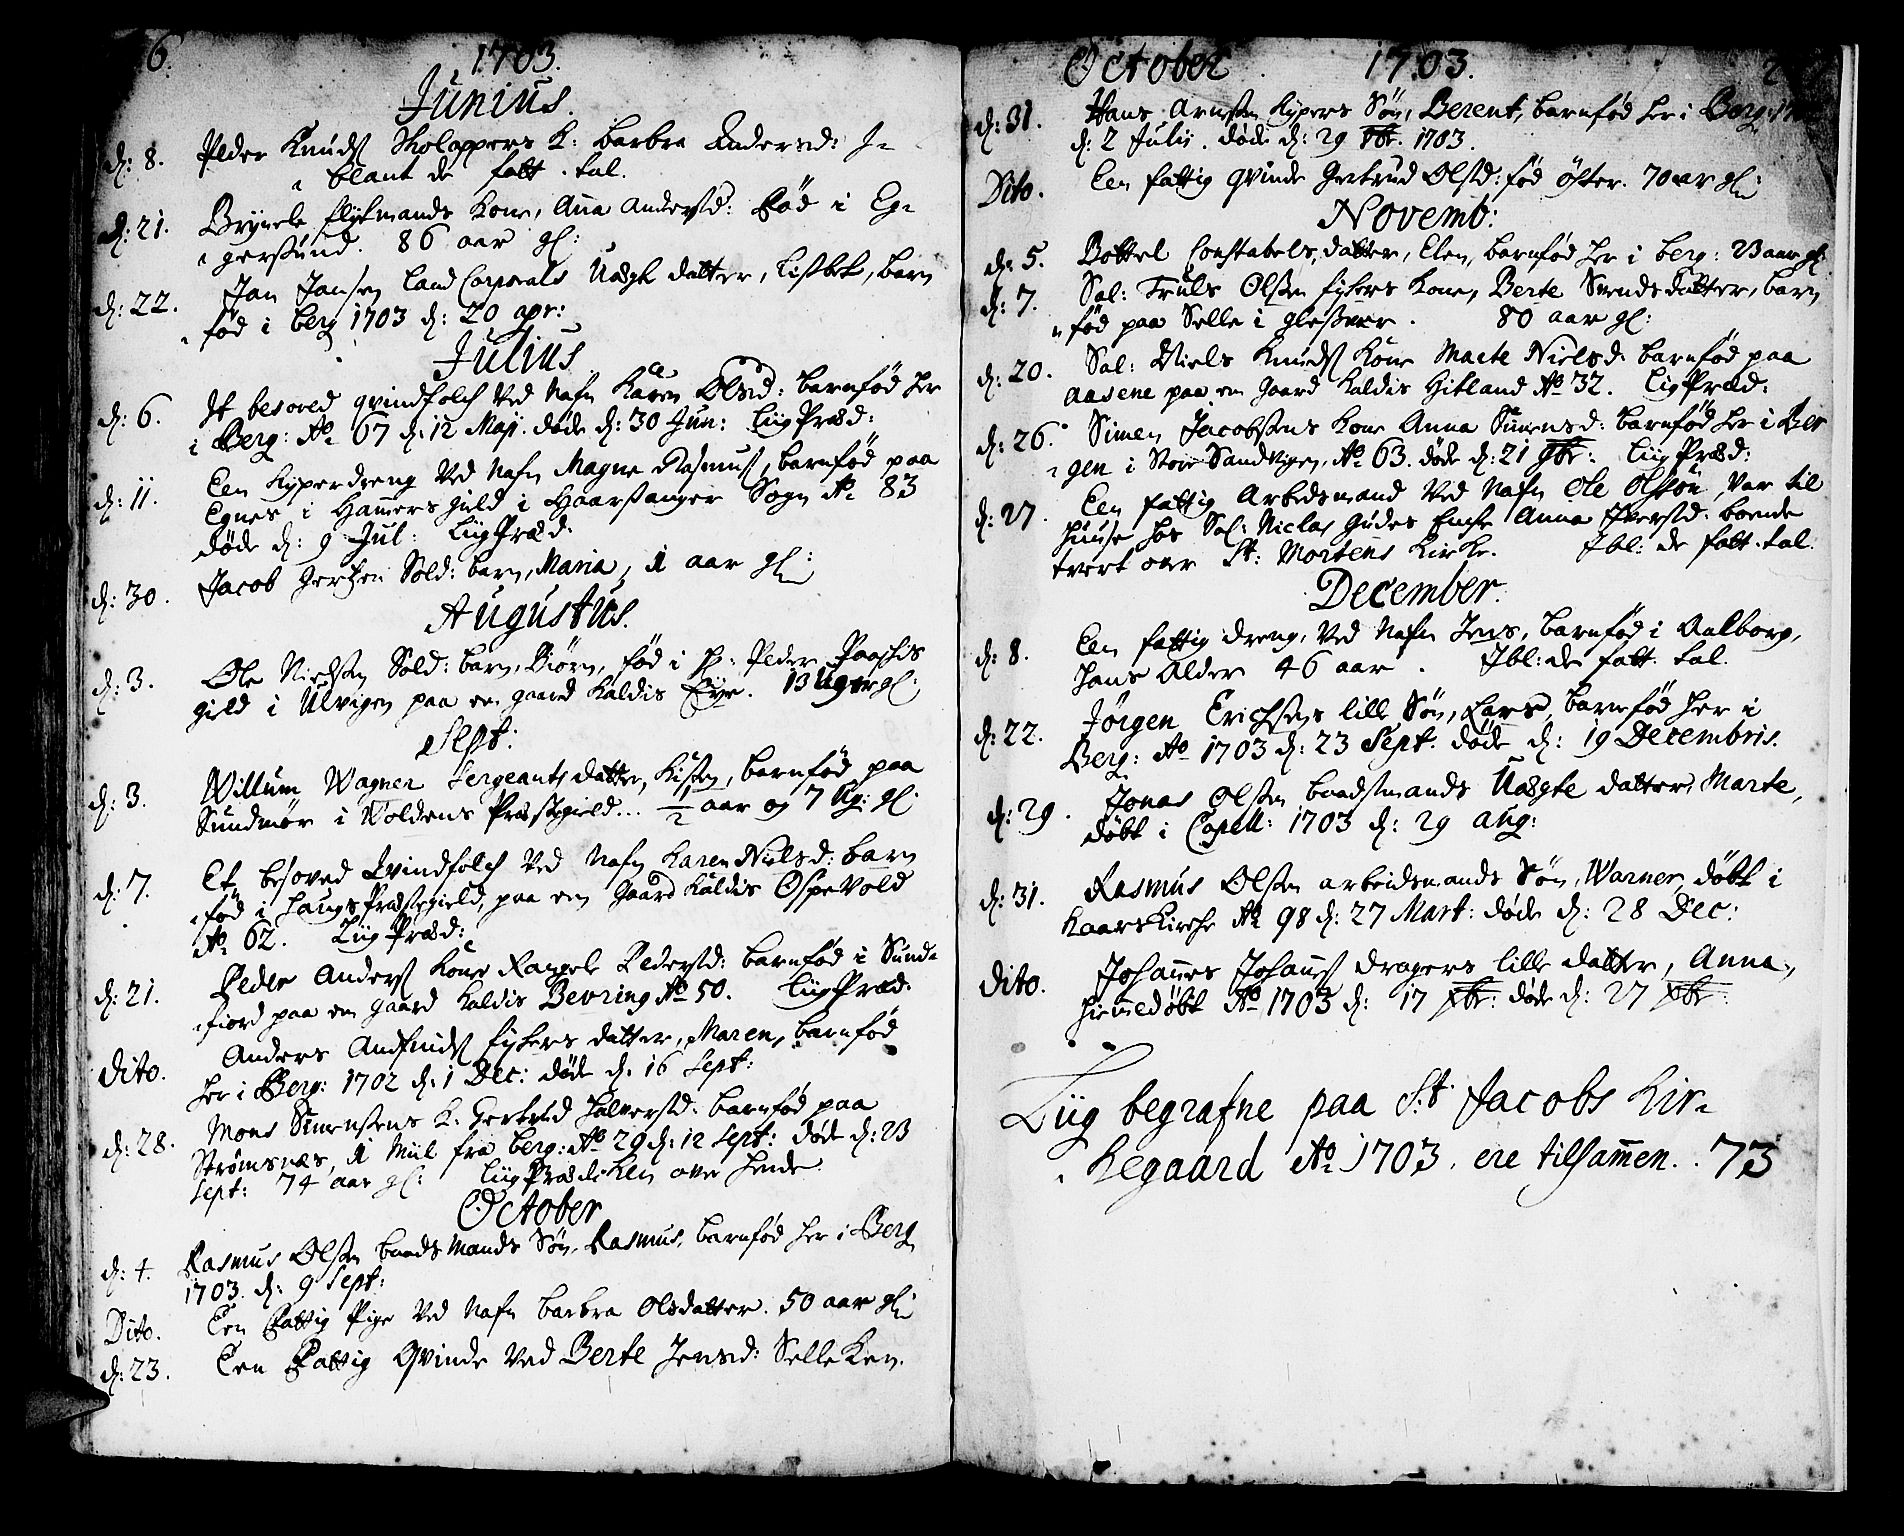 6.
1703.
Junius.
d: 8. Peder Knuds Skolappers K: barbra Andersd: I-
blant de fatt. tal.
d: 21. Brynele flytmands Kone, Anna Andersd: Fød i Eg-
gersund. 86 aar gl:
d: 22. Jan Jansen Land Corporals Uægte datter, Lisbet, barn
fød i berg 1703 d: 20 apr:
Julius
d: 6. It besoved qvindfolch Ved Nafn Karen Olsd: barnfød her
i Berg: Ao 67 d: 12 Maji. døde d: 30 Jun: Liig Præd:
d: 11. Een Kyperdreng Ved Nafn Magne Rasmus, barnfød paa
Egnes i Hamers gield i Haarsanger Sogn Ao 83
døde d: 9 Jul: Liig Præd:
d: 30. Jacob Gertzen Sold: barn, Maria, 1 aar gl:
Augustus.
d: 3. Ole Nielsen Sold: barn, Biørn, fød i Hr: Peder Paaschis
gield i Ulvigen paa en gaard Kaldis Eye. 13 Uger gl:
Sept:
d: 3. Willum Wagner Sergeants datter, Kisten, barnfød paa
Sundmør i Woldens Præstegield... 1/2 aar og 7 Ug: gl:
d: 7. Et besoved Qvindfolch Ved Nafn Karen Nielsd: barn
fød i Haugs Præstegield, paa en Gaard Kaldis Ospevold
Ao 62. Liig Præd:
d: 21. Peder Anders Kone Rangele Pedersd: barnfød i Sund-
fiord paa en gaard Kaldis Bevring Ao 50. Liig Præd:
Dito. Anders Andfinds fiskers datter, Maren, barnfød
her i Berg: 1702 d: 1 Dec: døde d: 16 Sept:
d: 28. Mons Simensens K: Gertrud Halversd: barnfød paa
Strømsnæs, 1 Miil fra berg: Ao 29 d: 12 Sept: døde d: 23
Sept: 74 aar gl: Liig Prædiken over hende.
October
d: 4. Rasmus Olsen baads Mands Søn, Rasmus, barnfød her i Berg
1703. d: 9 Sept:
Dito. Een Fattig Pige Ved Nafn barbra Olsdatter. 50 aar gl:
d: 23. Een Fattig Qvinde Ved Berte Jensd: SelleKen.
October 1703.
d: 31. Hans Arnsen Kypers Søn, Berent, barnfød her i Berg:
d: 2 Julij. døde d: 29 8br. 1703.
Dito. Een fattig qvinde Gertrud Olsd: fød öster. 70 aar gl:
Novemb:
d: 5. Bottel Constabels, datter, Elen, barnfød her i berg: 23 aar gl:
d: 7. Sal: Truls Olsen fiskers Kone, Berte Svends datter, barn
fød paa Selle i glesvær. 80 aar gl:
d: 20. Sal: Niels Knuds Kone Marte Nielsd: barnfød paa
Aasene paa en Gaard Kaldis Hitland Ao 32. Liig Præd:
d: 26. Simen Jacobsens Kone Anna Simensd: barnfød her i Ber
gen i Store Sandvigen, Ao 63. døde d: 21 9br: Liig Præd:
d: 27. Een fattig Arbedsmand Ved Nafn Ole Olsøn, Var til
huuse hos Sal: Niclas Gudes Enche Anna Iversd: boende
tvert over St: Mortens Kirke. Ibl: de fatt. tal.
December.
d: 8. Een fattig dreng, Ved Nafn Jens, barnfød i Aalborg,
hans Alder 46 aar. Ibl: de fatt. tal.
d: 22. Jørgen Erichsens lille Søn, Lars, barnfød her i
Berg: Ao 1703 d: 23 Sept. døde d: 19 Decembris.
d: 29. Jonas Olsen baadsmands Uægte datter, Marte,
døbt i Capell: 1703 d: 29 aug:
d: 31. Rasmus Olsen arbeidsmands Søn, Warner, døbt i
Kaars Kirche Ao 98 d: 27 Mart: døde d: 28 Dec:
Dito. Johannes Johans dragers lille datter, Anna,
hiemedøbt Ao 1703 d: 17 Xbr: døde d: 27 Xbr:
Liig begrafne paa St. Jacobs Kir-
Kegaard Ao 1703. ere tilsamen.. 73